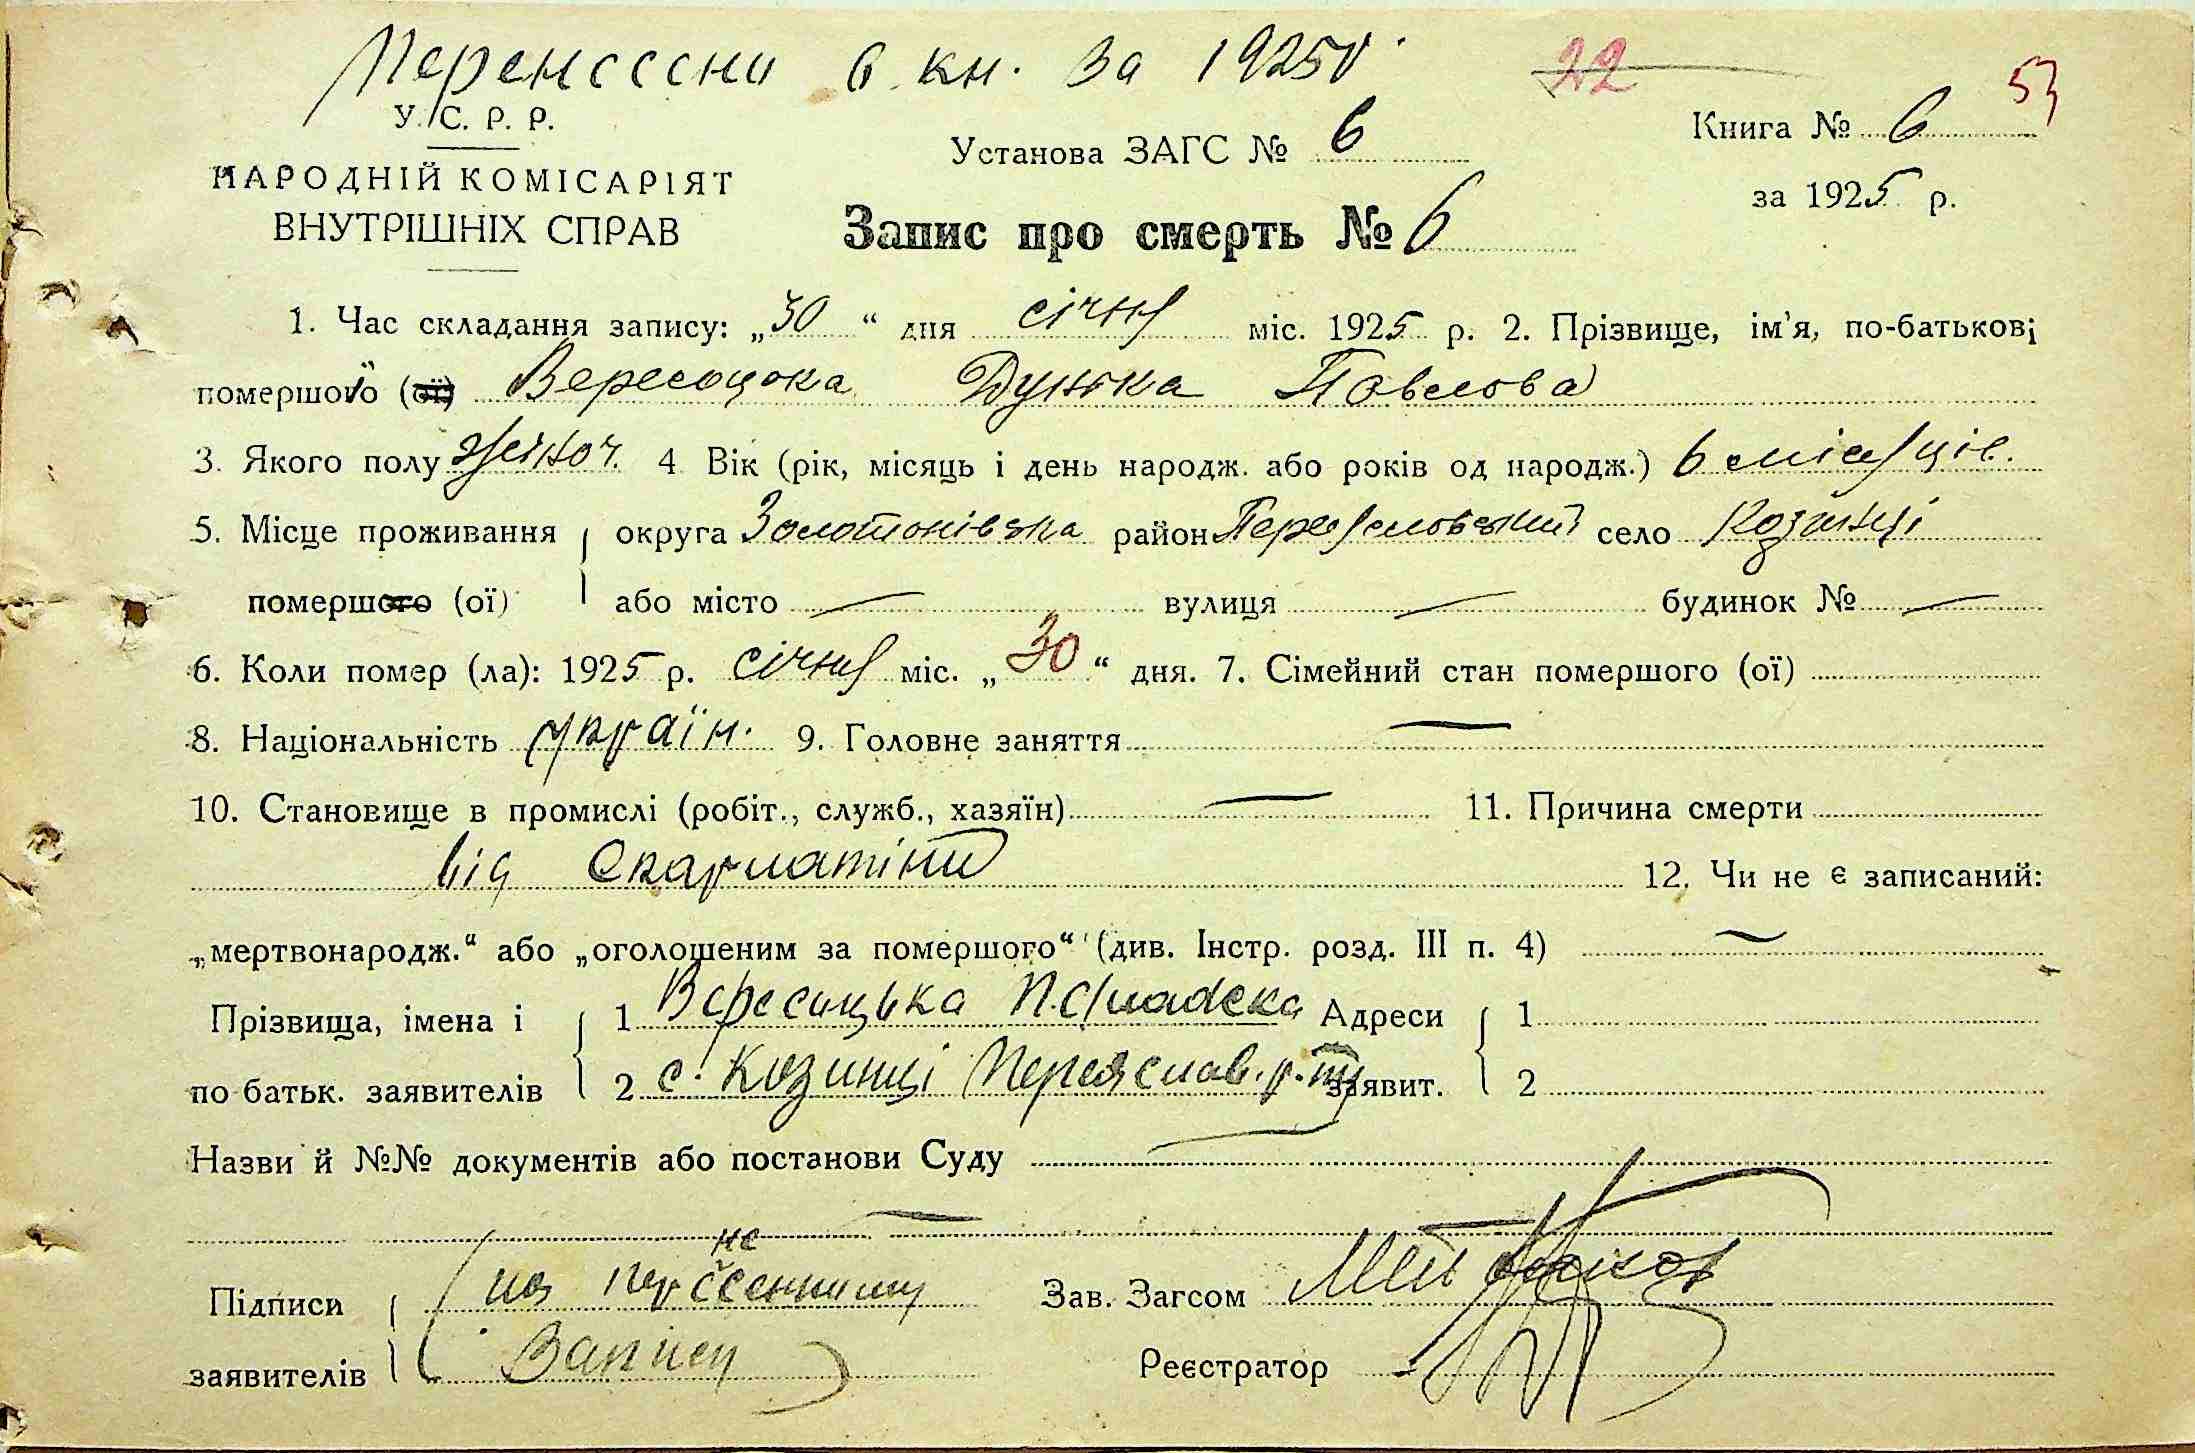 Перенесени в кн. за 1925 г.
22
53
У. С. Р. Р.
НАРОДНІЙ КОМІСАРІЯТ
ВНУТРІШНІХ СПРАВ
Установа ЗАГС № 6
Книга № 6
за 1925 р.
Запис про смерть № 6
1. Час складання запису: „30“ дня січня міс. 1925 р. 2. Прізвище, ім'я, по-батькові
помершого (ої) Вересоцька Дунька Павлова
3. Якого полу жіноч. 4 Вік (рік, місяць і день народж. або років од народж.) 6 місяців.
5. Місце проживання округа Золотонівська район Переяславський село Козинці
помершого (ої) або місто — вулиця — будинок № —
6. Коли помер (ла): 1925 р. січня міс. „30“ дня. 7. Сімейний стан помершого (ої)
8. Національність україн. 9. Головне заняття —
10. Становище в промислі (робіт., служб., хазяїн) — 11. Причина смерти
від скарлатіни 12. Чи не є записаний:
„мертвонародж.“ або „оголошеним за помершого“ (див. Інстр. розд. III п. 4) —
Прізвища, імена і 1 Вересоцька Адреси 1
по батьк. заявителів 2 с. Козинці Переяслав. р-ну заявит. 2
Назви й №№ документів або постанови Суду —
—
Підписи Зав. Загсом
заявителів Запису Реєстратор